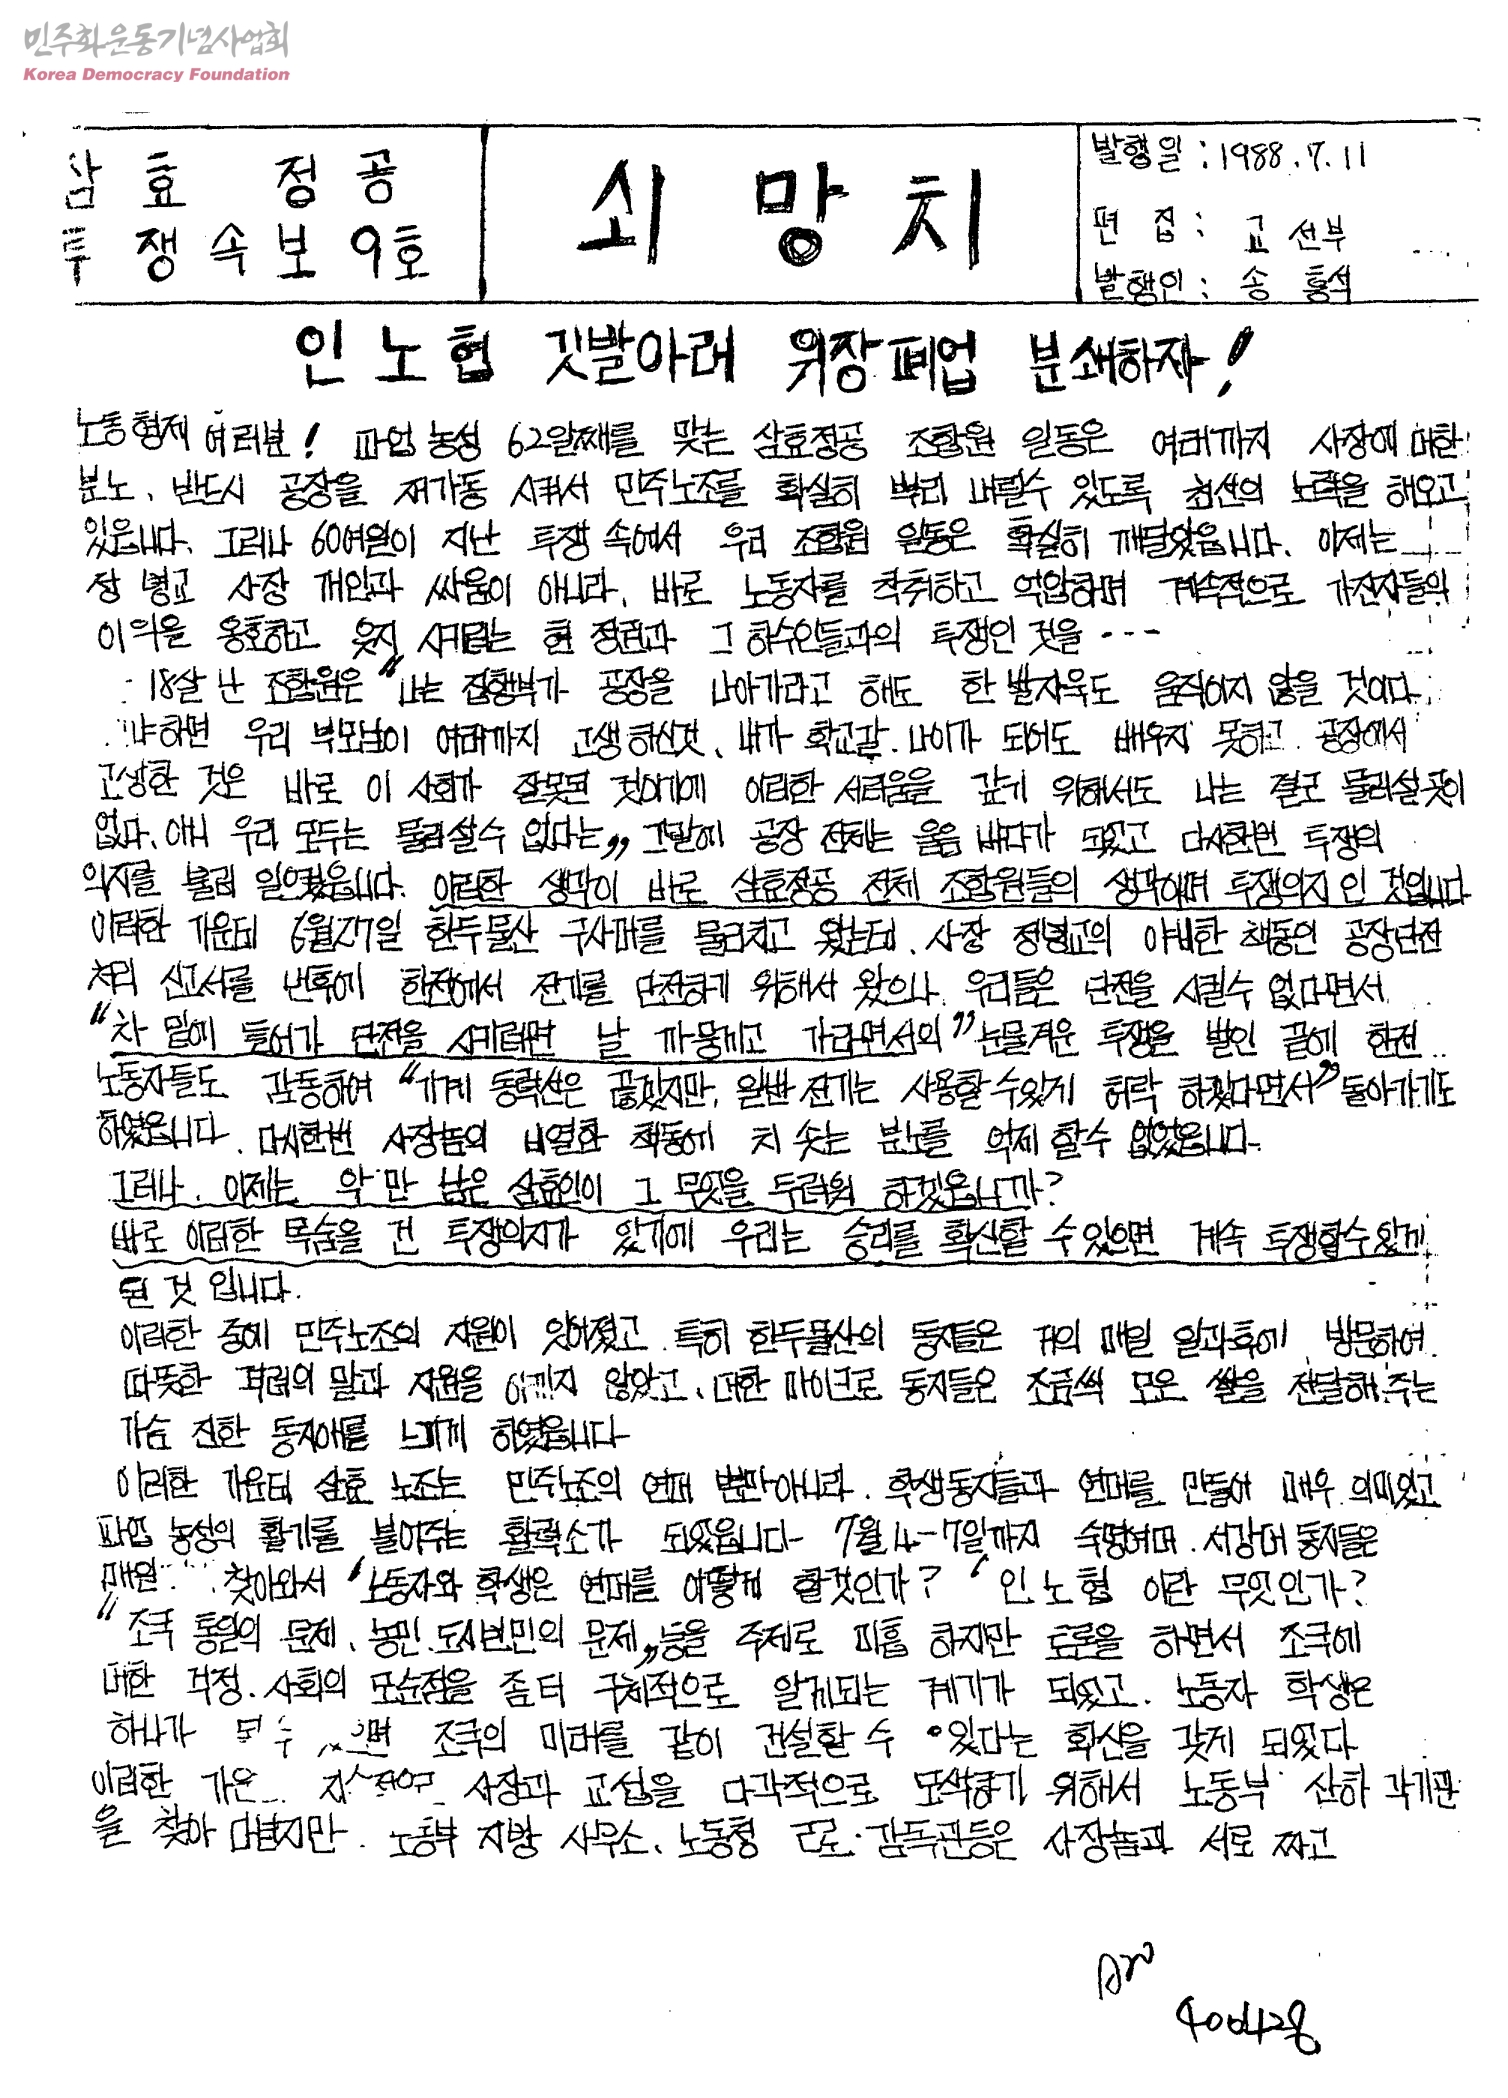 민주화운동기념사업회
Korea Democracy Foundation
삼효 정공
투쟁속보 9호
쇠망치
발행일 : 1988. 7. 11
편집 : 교선부
발행인 : 송홍석
인노협 깃발아래 위장폐업 분쇄하자!
노동형제 여러분! 파업농성 62일째를 맞는 삼효정공 조합원 일동은 여태까지 사장에 대한
분노, 반드시 공장을 재가동 시켜서 민주노조를 확실히 뿌리 내릴수 있도록 최선의 노력을 해오고
있읍니다. 그러나 60여일이 지난 투쟁 속에서 우리 조합원 일동은 확실히 깨달았읍니다. 이제는
정병교 사장 개인과 싸움이 아니라, 바로 노동자를 착취하고 억압하며 계속적으로 가진자들의
이익을 옹호하고 유지 시키려는 현 정권과 그 하수인들과의 투쟁인 것을 ---
18살 난 조합원은 "나는 집행부가 공장을 나아가라고 해도 한 발자욱도 움직이지 않을 것이다.
냐하면 우리 부모님이 여태까지 고생하신것, 내가 학교갈 나이가 되어도 배우지 못하고 공장에서
고생한 것은 바로 이 사회가 잘못된 것이기에 이러한 서러움을 갚기 위해서도 나는 결코 물러설곳이
없다. 아니 우리 모두는 물러설수 없다는" 그말에 공장 전체는 울음 바다가 되었고 다시한번 투쟁의
의지를 불러 일으켰읍니다. 이러한 생각이 바로 삼효정공 전체 조합원들의 생각이며 투쟁의지인 것입니다
이러한 가운데 6월27일 한두물산 구사대를 물리치고 왔는데, 사장 정병교의 야비한 책동인 공장단전
처리 신고서를 낸후에 한전에서 전기를 단전하기 위해서 왔으나 우리들은 단전을 시킬수 없다면서
"차 밑에 들어가 단전을 시키려면 날 까뭉개고 가라면서의" 눈물겨운 투쟁을 벌인 끝에 한전
노동자들도 감동하여 "기계 동력선은 끊겠지만, 일반 전기는 사용할수있게 허락 하겠다면서" 돌아가기도
하였읍니다. 다시한번 사장놈의 비열한 책동에 치 솟는 분노를 억제 할수 없었읍니다.
그러나, 이제는 악 만 남은 삼효인이 그 무엇을 두려워 하겠읍니까?
바로 이러한 목숨을 건 투쟁의지가 있기에 우리는 승리를 확신할 수 있으면 계속 투쟁할수 있게
된 것 입니다.
이러한 중에 민주노조의 지원이 잇어졌고 특히 한두물산의 동지들은 거의 매일 일과후에 방문하여
따뜻한 격려의 말과 지원을 아끼지 않았고, 대한 마이크로 동지들은 조금씩 모은 쌀을 전달해 주는
가슴 진한 동지애를 느끼게 하였읍니다
이러한 가운데 삼효 노조는 민주노조의 연대 뿐만아니라, 학생동지들과 연대를 만들어 매우 의미있고
파업 농성의 활기를 불어주는 활력소가 되었읍니다. 7월 4-7일까지 숙명여대, 서강대 동지들은
매일 찾아와서 "노동자와 학생은 연대를 어떻게 할것인가? "인노협 이란 무엇인가?
"조국 통일의 문제, 농민 도시빈민의 문제" 등을 주제로 미흡 하지만 토론을 하면서 조국에
대한 걱정, 사회의 모순점을 좀더 구체적으로 알게되는 계기가 되었고, 노동자 학생은
하나가 수 조국의 미래를 같이 건설할 수 있다는 확신을 갖게 되었다
이러한 사장과 교섭을 다각적으로 모색하기 위해서 노동부 산하 각기관
을 찾아 다녔지만. 노동부 지방 사무소, 노동청 근로·감독관등은 사장놈과 서로 짜고